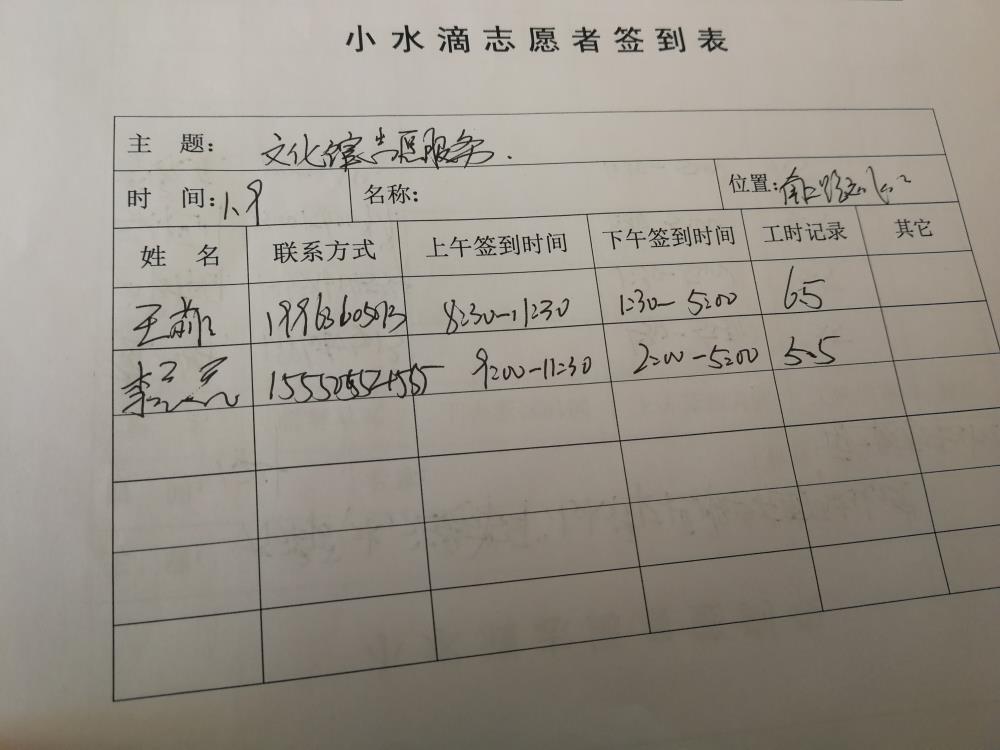 小水滴志愿者签到表
主 题: 文化馆志愿服务.
时 间: 1、9 名称: 位置:
姓 名 联系方式 上午签到时间 下午签到时间 工时记录 其它
王 8:30-11:30 1:30-5:00 6.5
李 9:00-11:30 2:00-5:00 5.5